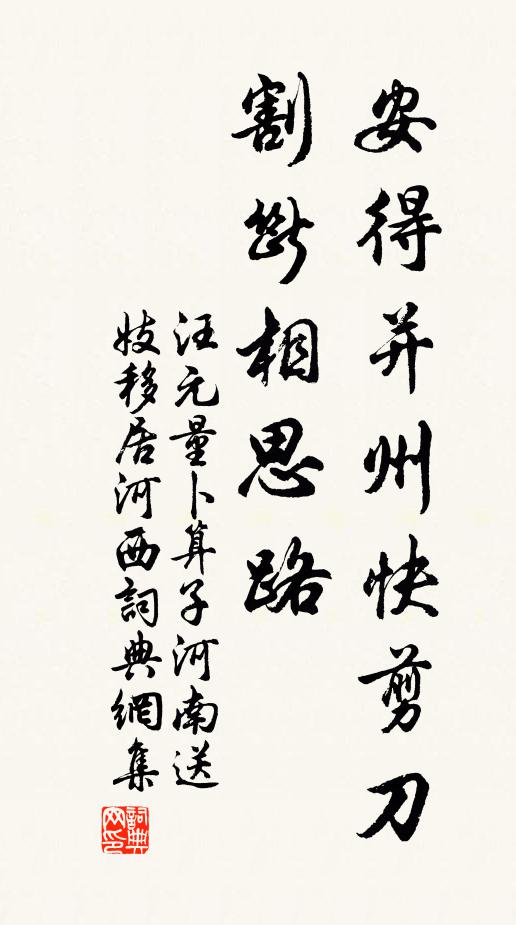 安得并州快剪刀
割斷相思路
汪元量卜算子河南送
妓移居河西詞典網集
詞典
网印